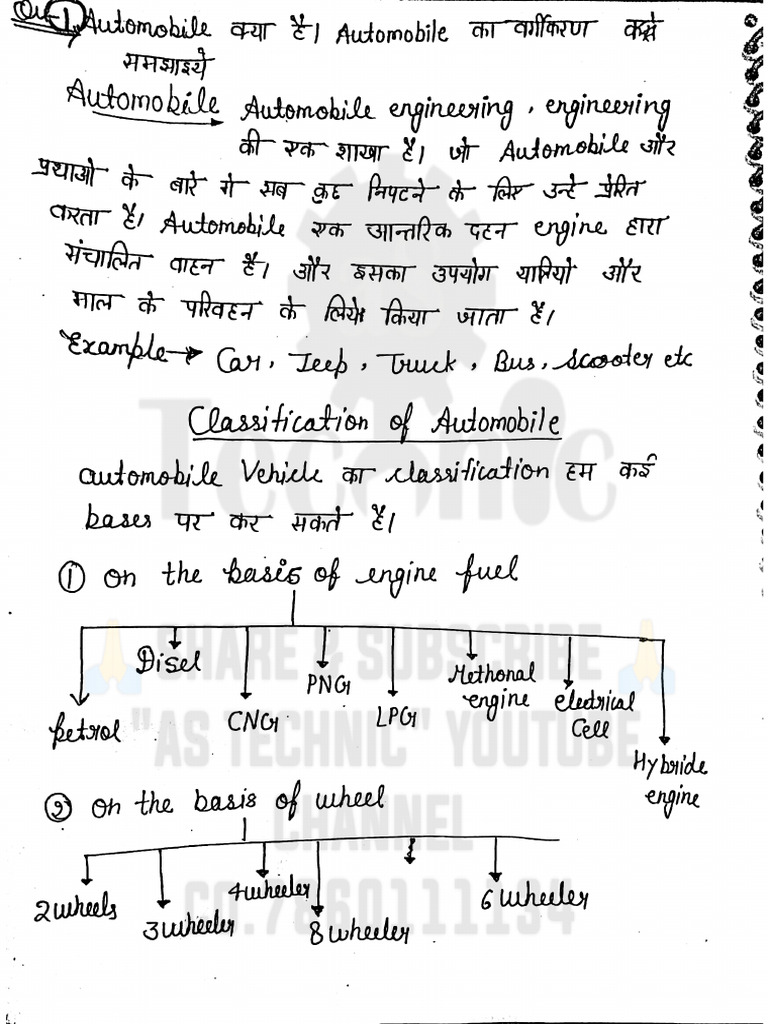 Qu-1, Automobile क्या है। Automobile का वर्गीकरण कसे
समझाइये
Automobile → Automobile engineering, engineering
की एक शाखा है। जो Automobile और
प्रथाओ के बारे मे सब कुछ निपटने के लिए उन्हे प्रेरित
करता है। Automobile एक आन्तरिक दहन engine द्वारा
संचालित वाहन है। और इसका उपयोग यात्रियो और
माल के परिवहन के लिये किया जाता है।
Example → Car, Jeep, Truck, Bus, Scooter etc
Classification of Automobile
automobile Vehicle का classification हम कई
bases पर कर सकते है।
① on the basis of engine fuel
Petrol Disel CNG PNG LPG Methonal engine electrical Cell Hybride engine
② on the basis of wheel
2 wheels 3 wheeler 4 wheeler 8 wheeler 6 wheeler
Teconic
🙏 SHARE & SUBSCRIBE 🙏
"AS TECHNIC" YOUTUBE
CHANNEL
CO.7860111134